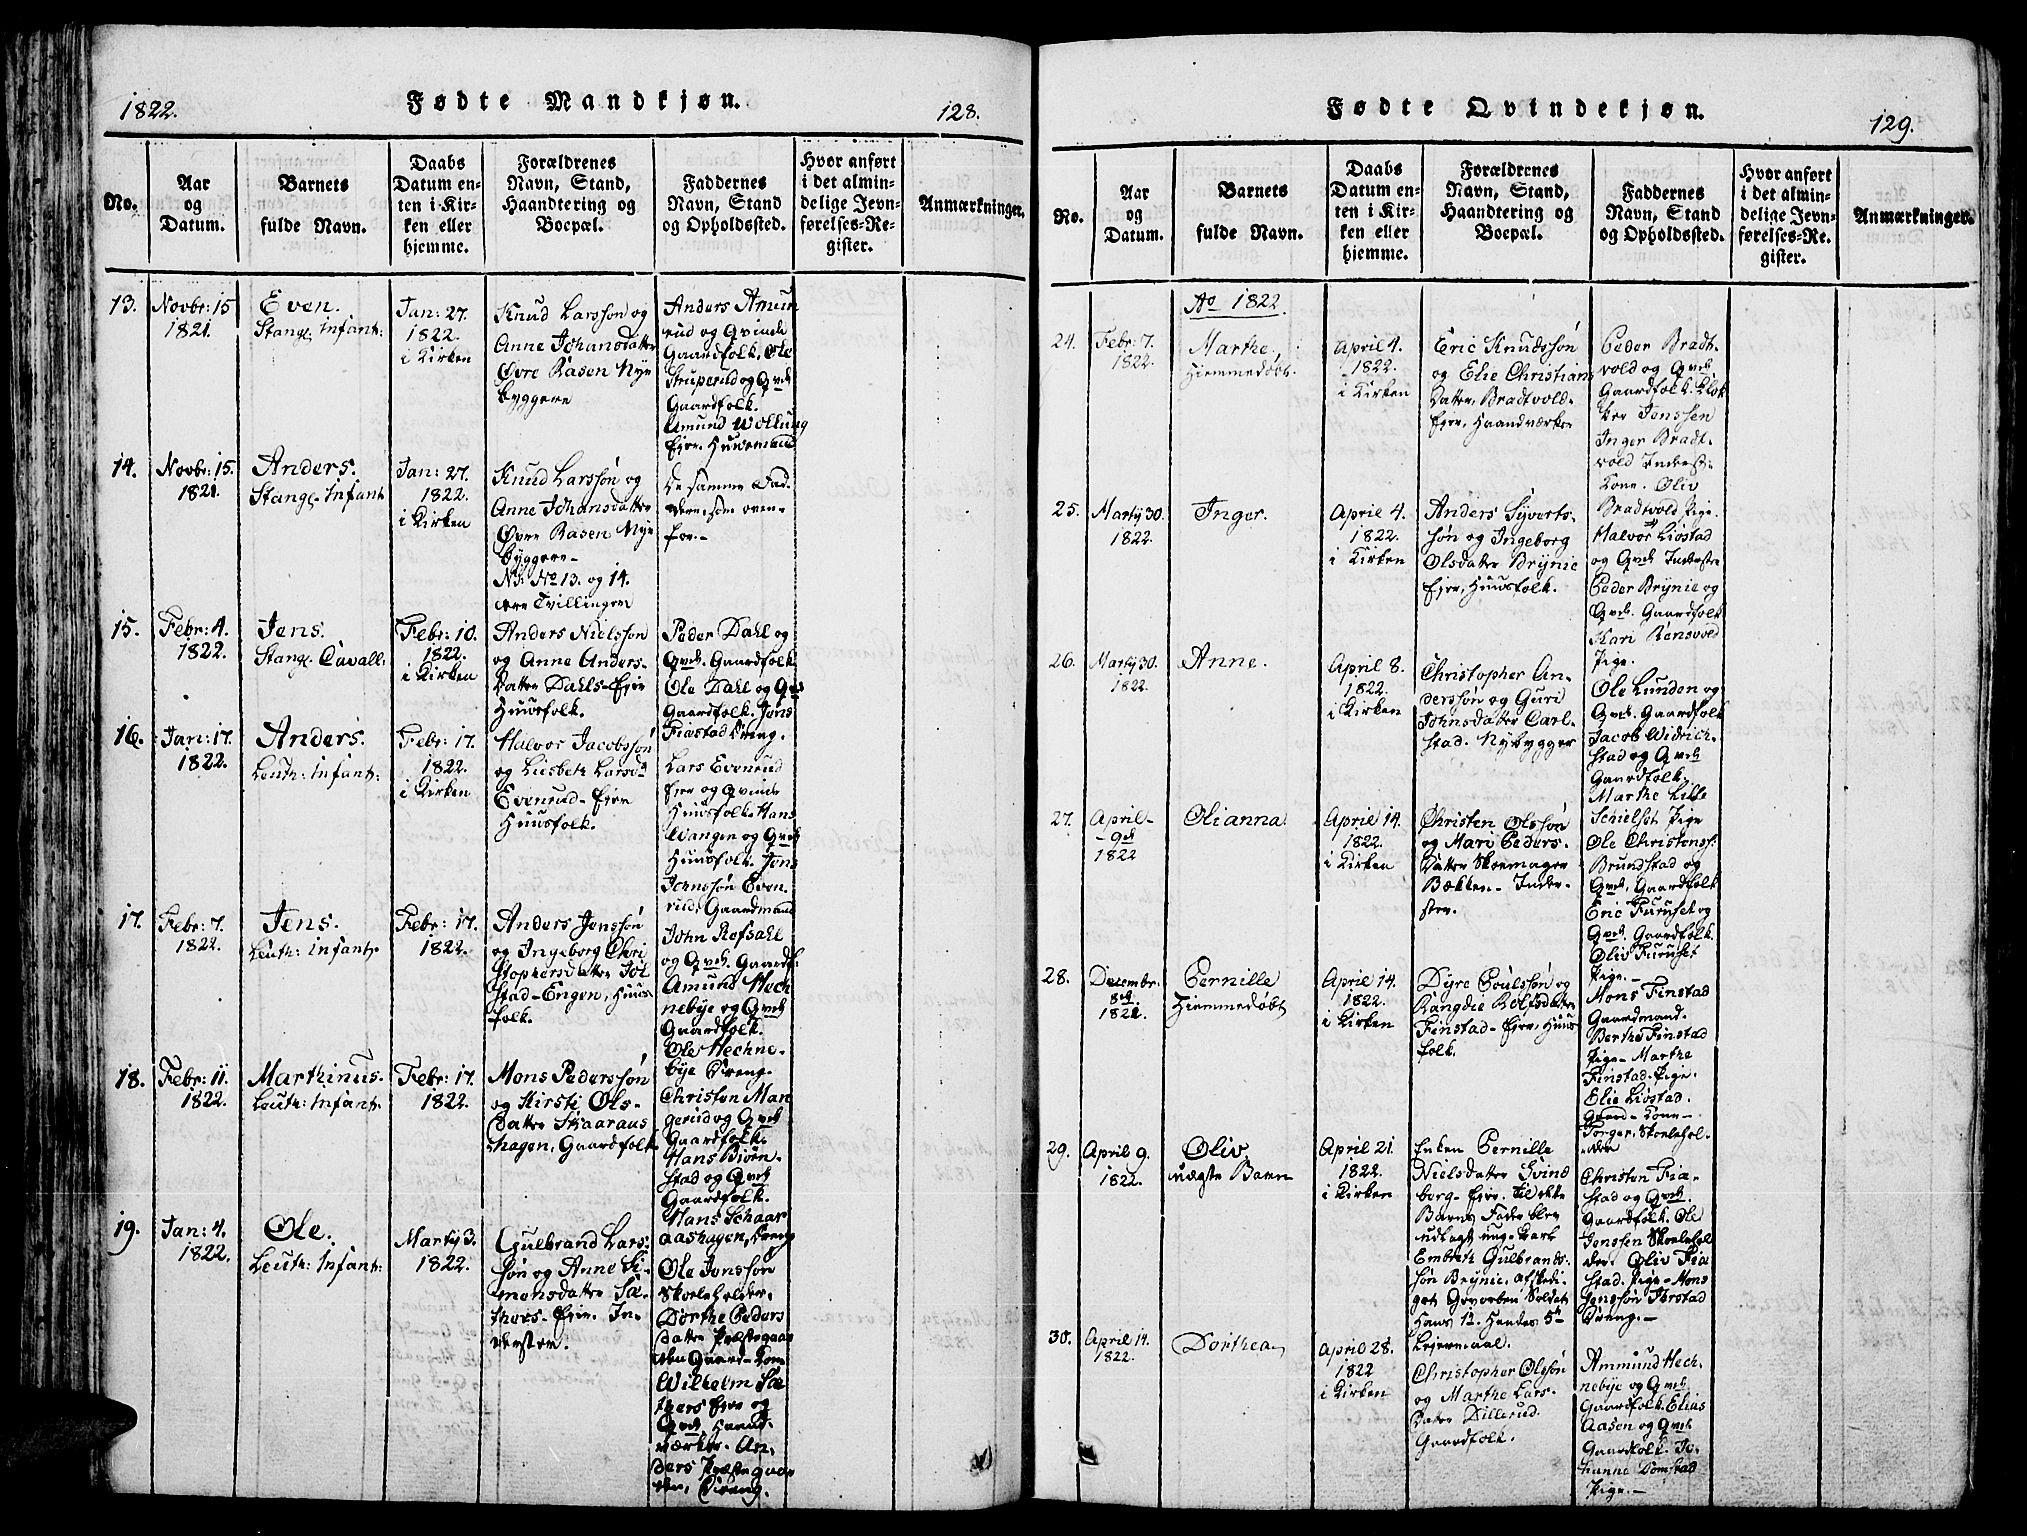 1822.
Fødte Mandkjøn.
128.
No.
Aar
og
Datum.
Barnets
fulde Navn.
Daabs
Datum en-
ten i Kir-
ken eller
hjemme.
Forældrenes
Navn, Stand,
Haandtering og
Boepæl.
Faddernes
Navn, Stand
og Opholdssted.
Hvor anført
i det almin-
delige Jevn-
førelses-Re-
gister.
Anmærkninger.
13.
Novbr: 15
1821.
Even.
Stange Infant:
Jan: 27.
1822.
i Kirken
Knud Larssøn og
Anne Johansdatter
Øvre Rasen Nye
byggere
Anders Amun
rud og Qvinde
Gaardfolk. Ole
Struperud og Qvd:
Gaardfolk.
Amund Wollung
Eier. Huusmand
14.
Novbr: 15.
1821.
Anders.
Stange Infant
Jan: 27.
1822.
i Kirken
Knud Larssøn og
Anne Johansdatter
Øvre Rasen Nye
byggere-
NB: No 13. og 14.
ere Tvillinger
De samme Fad-
dere, som oven-
for.-
15.
Febr: 4.
1822.
Jens.
Stange Cavall.
Febr: 10.
1822.
i Kirken
Anders Nielssøn
og Anne Anders-
datter Dahls-Eier
Huusfolk.
Peder Dahl og
Qvd. Gaardfolk.
Ole Dahl og Qvd
Gaardfolk. Jens
Fiastad Dreng.
16.
Jan: 17.
1822.
Anders.
Leuth: Infant:
Febr: 17.
1822.
i Kirken
Halvor Jacobssøn
og Lisbeth Larsd:
Evenrud-Eier
Huusfolk.
Lars Evenrud
Eier og Qvinde
Huusfolk. Hans
Wangen og Qvd
Huusfolk. Jens
Johnssøn Even-
rud, Gaardmand
17.
Febr: 7.
1822.
Jens.
Leuth: Infant:
Febr: 17.
1822.
Anders Jenssøn
og Ingeborg Chri
stophersdatter Jøl
stad-Engen, Huus-
folk.
John Refsahl
og Qvd. Gaardf:
Amund Hech-
nebye og Qvd
Gaardfolk.
Ole Hechne-
bye Dreng.
18.
Febr: 11.
1822.
Marthinus.
Leuth: Infant:
Febr: 17.
1822.
Mons Pederssøn
og Kirsti Ols-
datter Skaaraas
hagen, Gaardfolk
Christen Man
gerud og Qvd:
Gaardfolk.
Hans Biørn-
stad og Qvd
Gaardfolk.
Hans Schaar
aashagen, Dreng
19.
Jan: 4.
1822.
Ole.
Leuth: Infant:
Marty 3.
1822.
Gulbrand Lars-
søn og Anne Si-
monsdatter Sæ-
thers-Eier. In-
derster.
Ole Jenssøn
Skoleholder.
Dorthe Peders
datter Præstegaar
den Gaard-Kone
Wilhelm Sæ-
thers Eier og
Qvd. Haand-
værker. An-
ders Præstegaar
den, Dreng.
Fødte Qvindekjøn.
129.
No.
Aar
og
Datum.
Barnets
fulde Navn.
Daabs
Datum en-
ten i Kir-
ken eller
hjemme.
Forældrenes
Navn, Stand,
Haandtering og
Boepæl.
Faddernes
Navn, Stand
og Opholdssted.
Hvor anført
i det almin-
delige Jevn-
førelses-Re-
gister.
Anmærkninger.
Ao 1822.
24.
Febr: 7.
1822.
Marthe.
Hiemmedøbt.
April 4.
1822.
i Kirken
Eric Knudssøn
og Elie Christians
datter, Bradtvold-
Eier, Haandværker
Peder Bradt-
vold og Qvd
Gaardfolk. Klok
ker Jenssen
Inger Bradt-
vold Inderst-
kone. Oliv
Bradtvold Pige.
25.
Marty 30.
1822.
Inger.
April 4.
1822.
i Kirken
Anders Syverts-
søn og Ingeborg
Olsdatter Brynie
Eier, Huusfolk.
Halvor Liøstad
og Qvd: Inderster
Peder Brynie og
Qvd. Gaardfolk
Kari Rensvold
Pige.
26.
Marty 30.
1822.
Anne.
April 8.
1822.
i Kirken
Christopher An-
derssøn og Guri
Johnsdatter Carl-
stad. Nybygger
Ole Lunden og
Qvd. Gaardfolk
Jacob Widrich-
stad og Qvd
Gaardfolk.
Marthe Lille
Schielset Pige
27.
April-
- 9de
1822
Olianna
April 14.
1822.
i Kirken
Christen Olssøn
og Mari Peders-
datter Skoemager
Bækken- Inder-
ster.
Ole Christenss:
Brundstad og
Qvd. Gaardfolk
Eric Furuset og
Qvd. Gaardfolk.
Oliv Furuset
Pige.-
28.
Decembr:
8de
1821.
Pernille
Hiemmedøbt
April 14.
1822.
i Kirken
Dyre Poulssøn og
Rangdie Rolfsdatter
Finstad-Eier, Huus
folk.
Mons Finstad
Gaardmand.
Berthe Finstad
Pige- Marthe
Finstad- Pige.
Elie Liøstad.
Gaard-Kone-
Torger, Skolehol-
der
29.
April 9.
1822.
Oliv,
uægte Barn
April 21.
1822.
i Kirken
Enken Pernille
Nielsdatter Svind
borg-Eier. til dette
Barns Fader blev
udlagt unge Karl
Embreth Gulbrands-
søn Brynie, afskedi-
get Gevorben Soldat
Hans 1te Hendes 5te
Leiermaal.
Christen Fia-
stad og Qvd.
Gaardfolk. Ole
Jenssen Skolehol
der. Oliv Fia
stad. Pige- Mons
Jenssøn Førstad
Dreng.-
30.
April 14.
1822.
Dorthea
April 28.
1822
i Kirken
Christopher Olssøn
og Marthe Lars-
datter Dillerud.
Gaardfolk.
Ammund Hech-
nebye og Qvd
Gaardfolk. Elias
Aasen og Qvd
Gaardfolk. Jo-
hanne Domstad
Pige.-